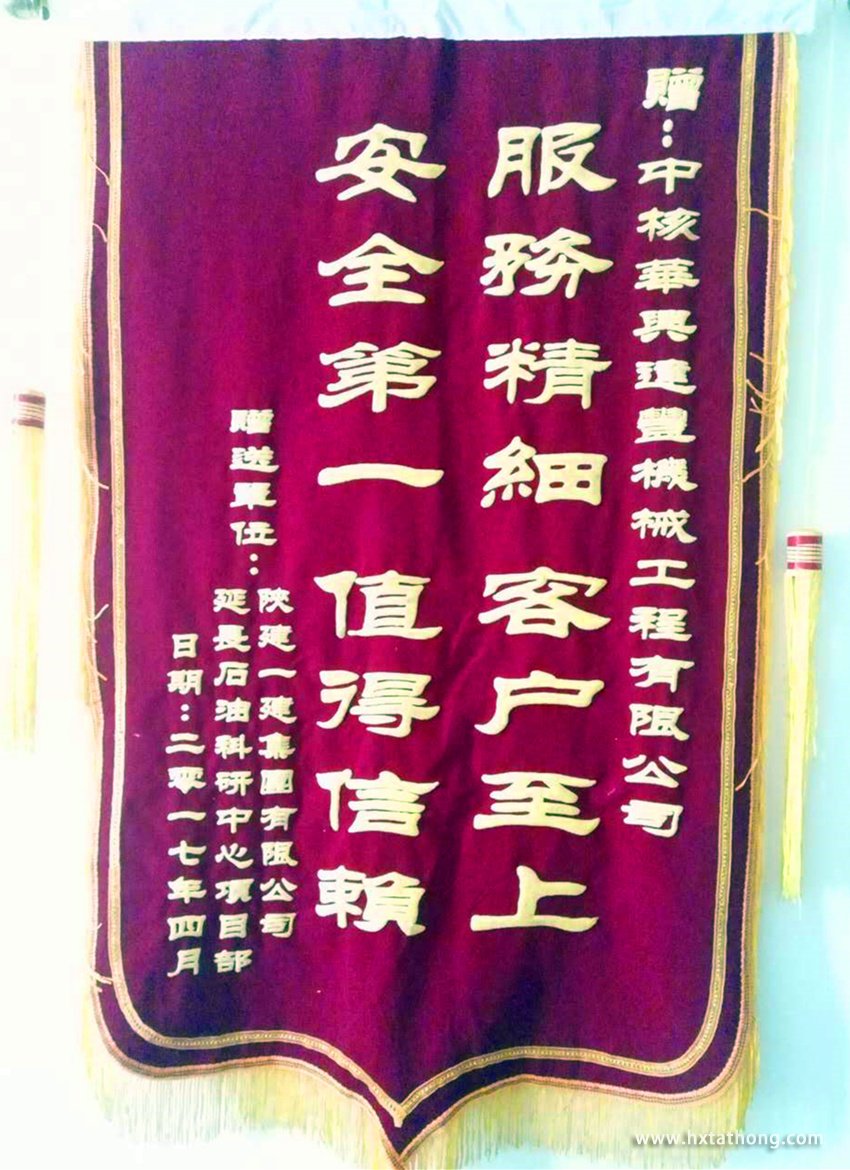 贈：中核華興達豐機械工程有限公司
服務精細 客户至上
安全第一 值得信賴
贈送單位：
陝建一建集團有限公司
延長石油科研中心項目部
日期：二零一七年四月
www.hxtathong.com